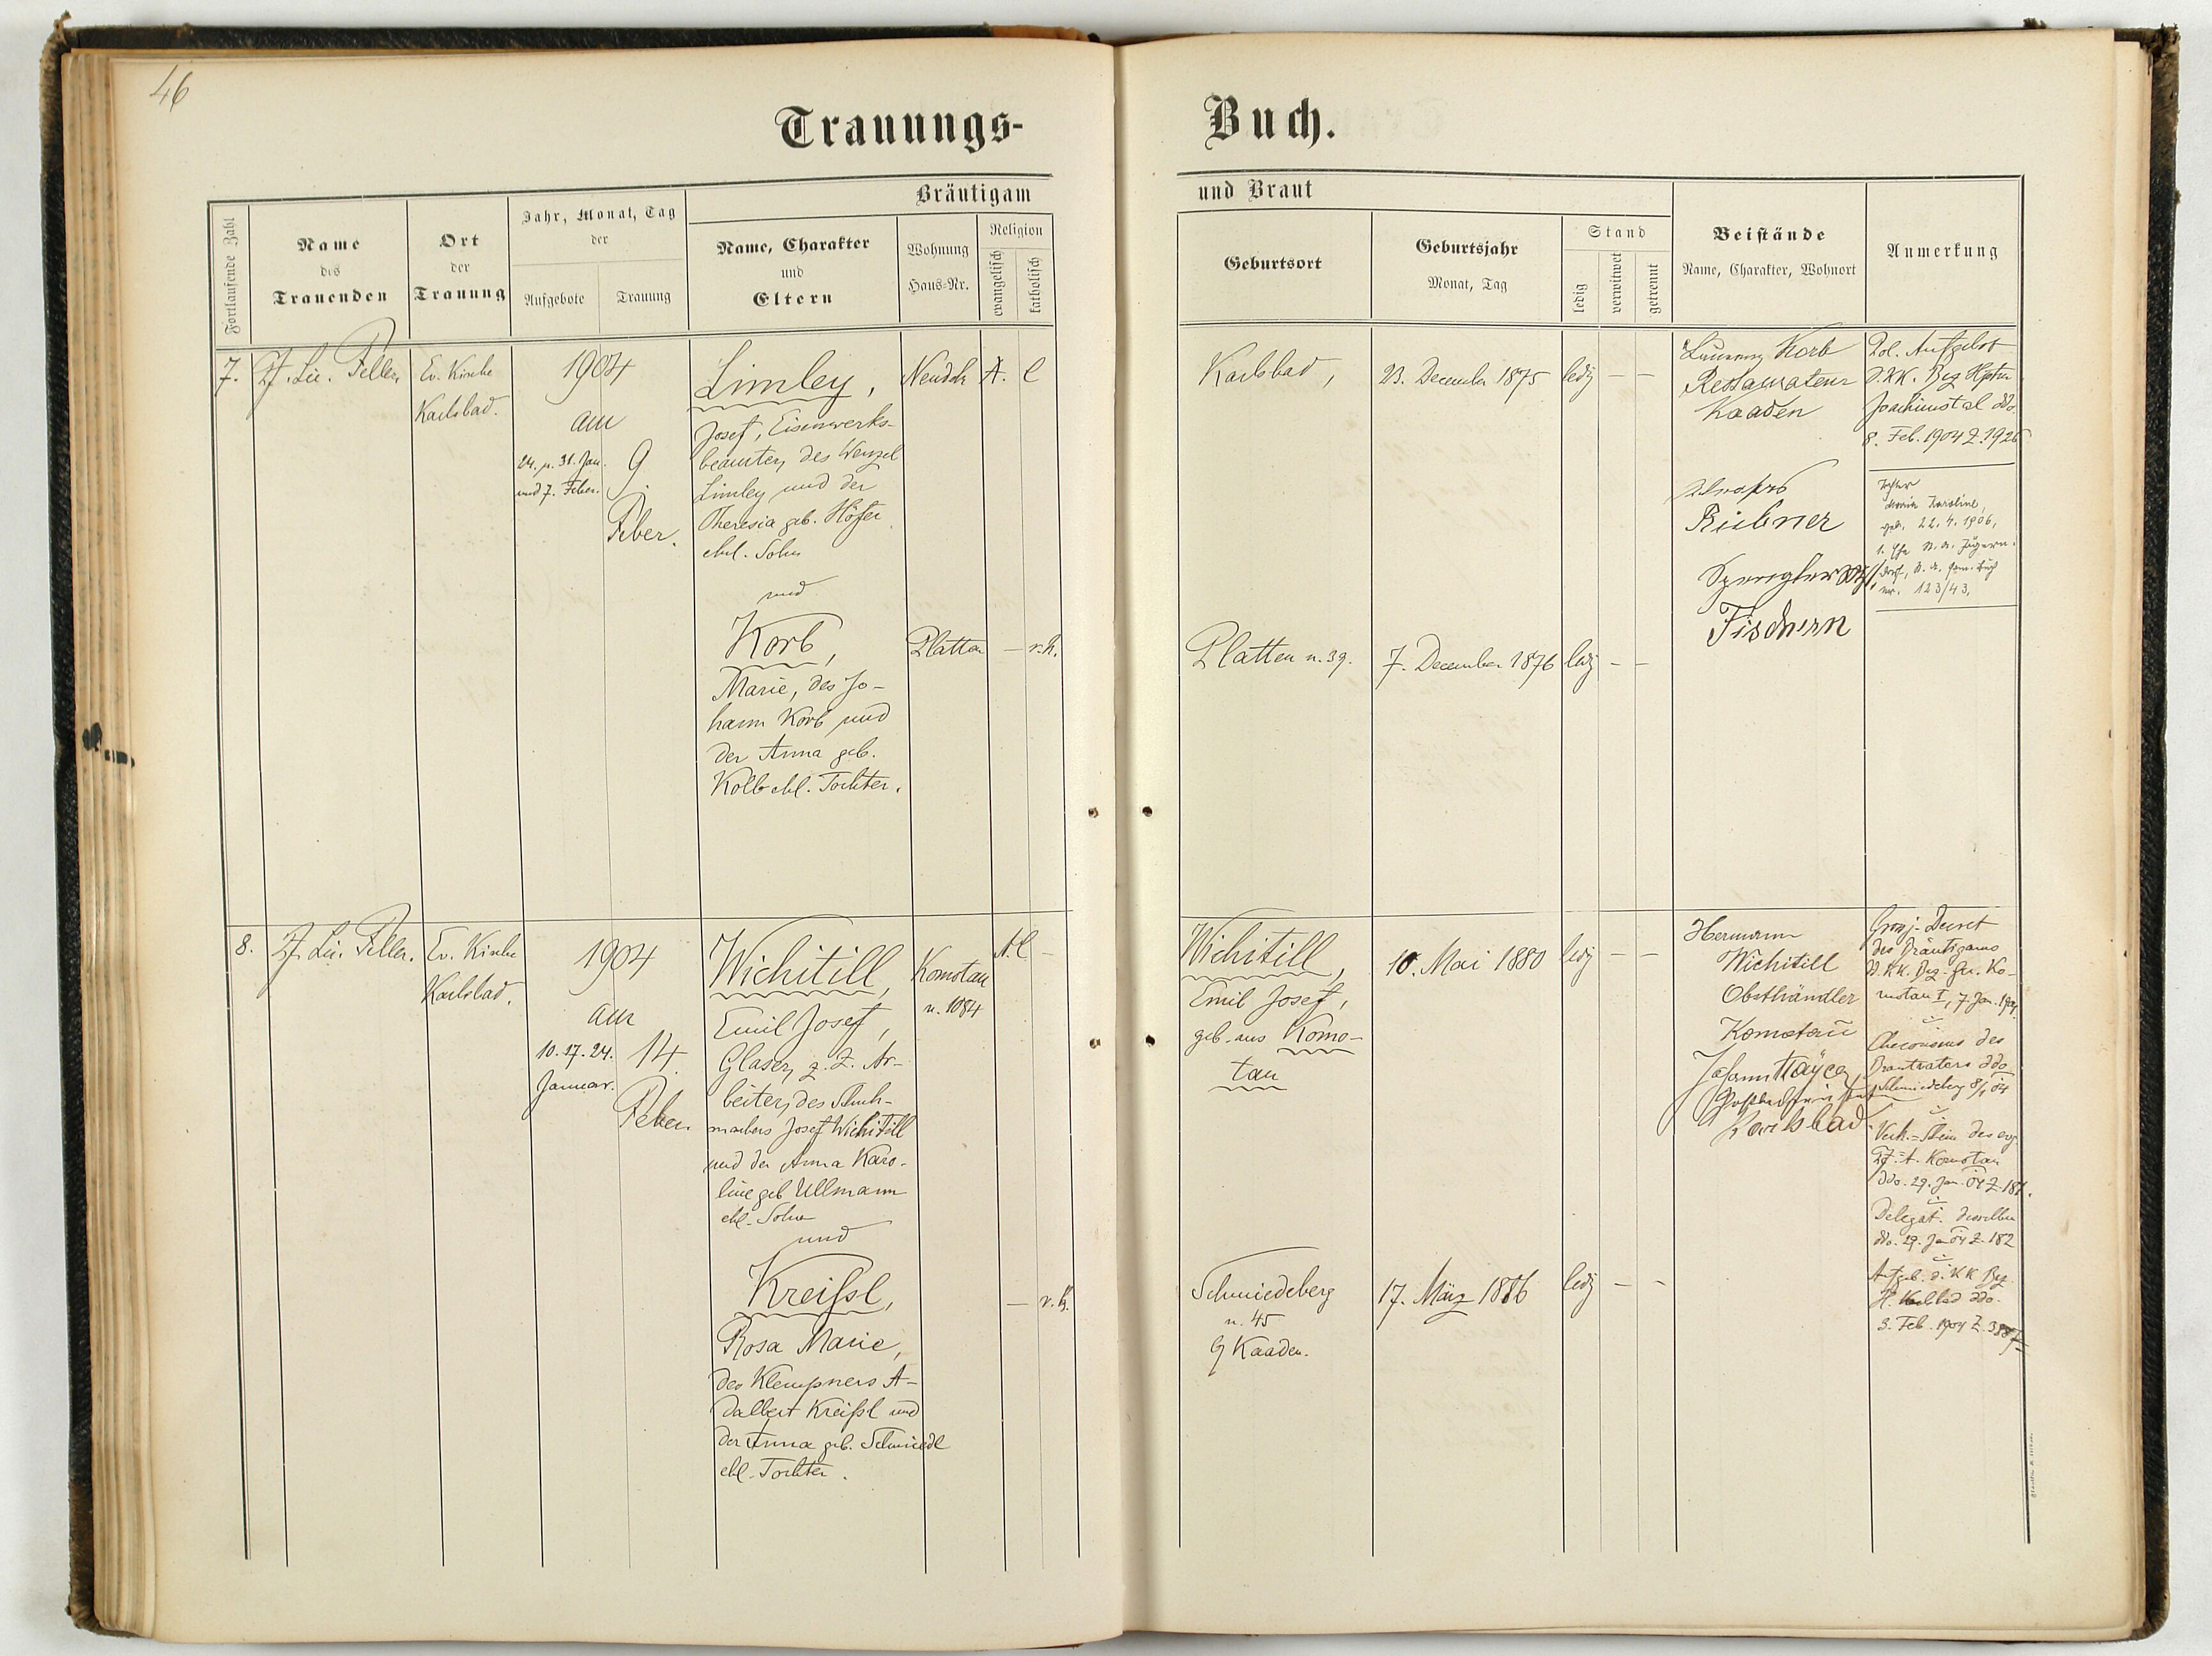 46
Trauungs-
Buch.
Bräutigam
und Braut
Fortlaufende Zahl
Name
des
Trauenden
Ort
der
Trauung
Jahr, Monat, Tag
der
Aufgebote
Trauung
Name, Charakter
und
Eltern
Wohnung
Haus-Nr.
Religion
evangelisch
katholisch
Geburtsort
Geburtsjahr
Monat, Tag
Stand
ledig
verwitwet
getrennt
Beistände
Name, Charakter, Wohnort
Anmerkung
7.
Pf. Lic. Feller,
Ev. Kirche
Karlsbad.
1904
am
24. u. 31. Jan.
und 7. Feber.
9.
Feber.
Limley,
Josef, Eisenwerks-
beamter, des Wenzel
Limley und der
Theresia geb. Höfer
ehl. Sohn
und
Korb,
Marie, des Jo-
hann Korb und
der Anna geb.
Kolb ehl. Tochter.
Neudek
A.
C
Platten
—
r.k.
Karlsbad,
23. December 1875
ledig
—
—
Platten n. 39.
7. December 1876
ledig
—
—
Korb
Restaurateur
Kaaden
Riebner
Spengler
Fischern
Pol. Aufgebot
d. KK. Bez Hptm
Joachimstal ddo.
8. Feb. 1904 Z. 1926
Tochter
Maria Karoline,
geb. 22.4.1906,
1. Ehe St. A. Jägern-
dorf, St. A. Fam. Buch
nr. 123/43.
8.
Pf. Lic. Feller.
Ev. Kirche
Karlsbad.
1904
am
10. 17. 24.
Januar.
14.
Feber.
Wichitill,
Emil Josef,
Glaser, z. Z. Ar-
beiter, des Schuh-
machers Josef Wichitill
und der Anna Karo-
line geb Ullmann
ehl. Sohn
und
Kreißl,
Rosa Marie,
des Klempners A-
dalbert Kreißl und
der Anna geb. Schmiedl
ehl. Tochter.
Komotau
n. 1084
A.C
—
—
r. k.
Wichitill,
Emil Josef,
geb. aus Komo-
tau
10. Mai 1880
ledig
—
—
Schmiedeberg
n. 45
G Kaaden.
17. März 1886
ledig
—
—
Hermann
Wichitill
Obsthändler
Komotau
Johann Mayer
Karlsbad.
Decret
des Bräutigams
d. KK. Bez. Ger. Ko-
motau I, 7. Jan. 1904
Checonsens des
Brautvaters ddo
Schmiedeberg 8/1 04
Verk.-Schein des evg
Pf. A. Komotau
ddo. 29. Jan. 04 Z. 181.
Delegat. desselben
ddo. 29. Jan 04 Z. 182
Aufgeb. d. KK Bez
H. Karlsbad ddo.
3. Feb. 1904 Z. 3887